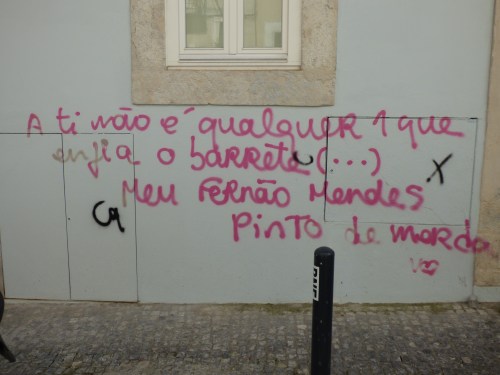 A ti não é qualquer 1 que
enfia o barrete (...)
Meu Fernão Mendes
Pinto de merda